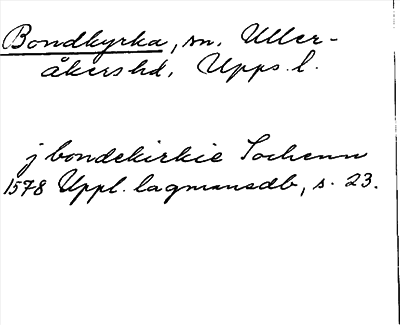 Bondkyrka, sn. Uller-
åkers hd. Upps. l.
j bondekirkie Sochenn
1578 Uppl. lagmansdb, s. 23.